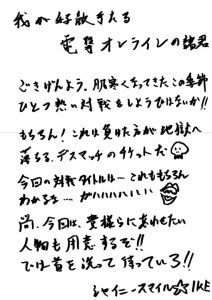 我が好敵手たる
電撃オンラインの諸君
ごきげんよう。肌寒くなってきたこの季節
ひとつ熱い対戦をしようではないか!!
もちろん!これは負けた方が地獄へ
落ちる、デスマッチのチケットだ
今回の対戦タイトルは…これももちろん
わかるな…ガハハハハハ
尚、今回は、貴様らに会わせたい
人物も用意するぞ!!
では首を洗って待っていろ!!
シャイニースマイル☆IKE